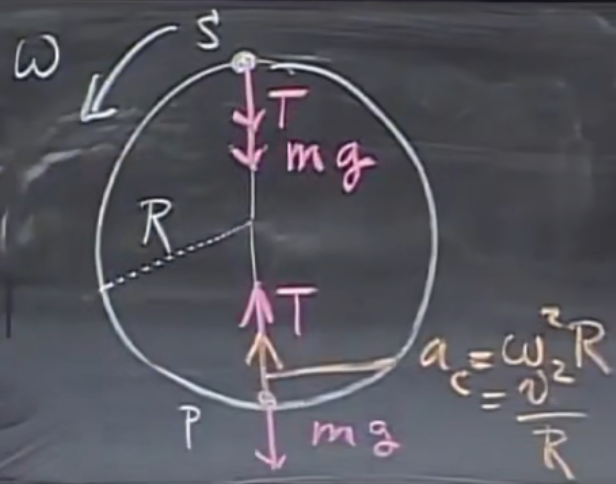 S
ω
T
mg
R
T
a_c = ω²R
= v²/R
P
mg